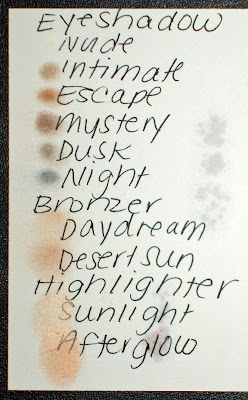 Eyeshadow
Nude
Intimate
Escape
Mystery
Dusk
Night
Bronzer
Daydream
Desert Sun
Highlighter
Sunlight
Afterglow